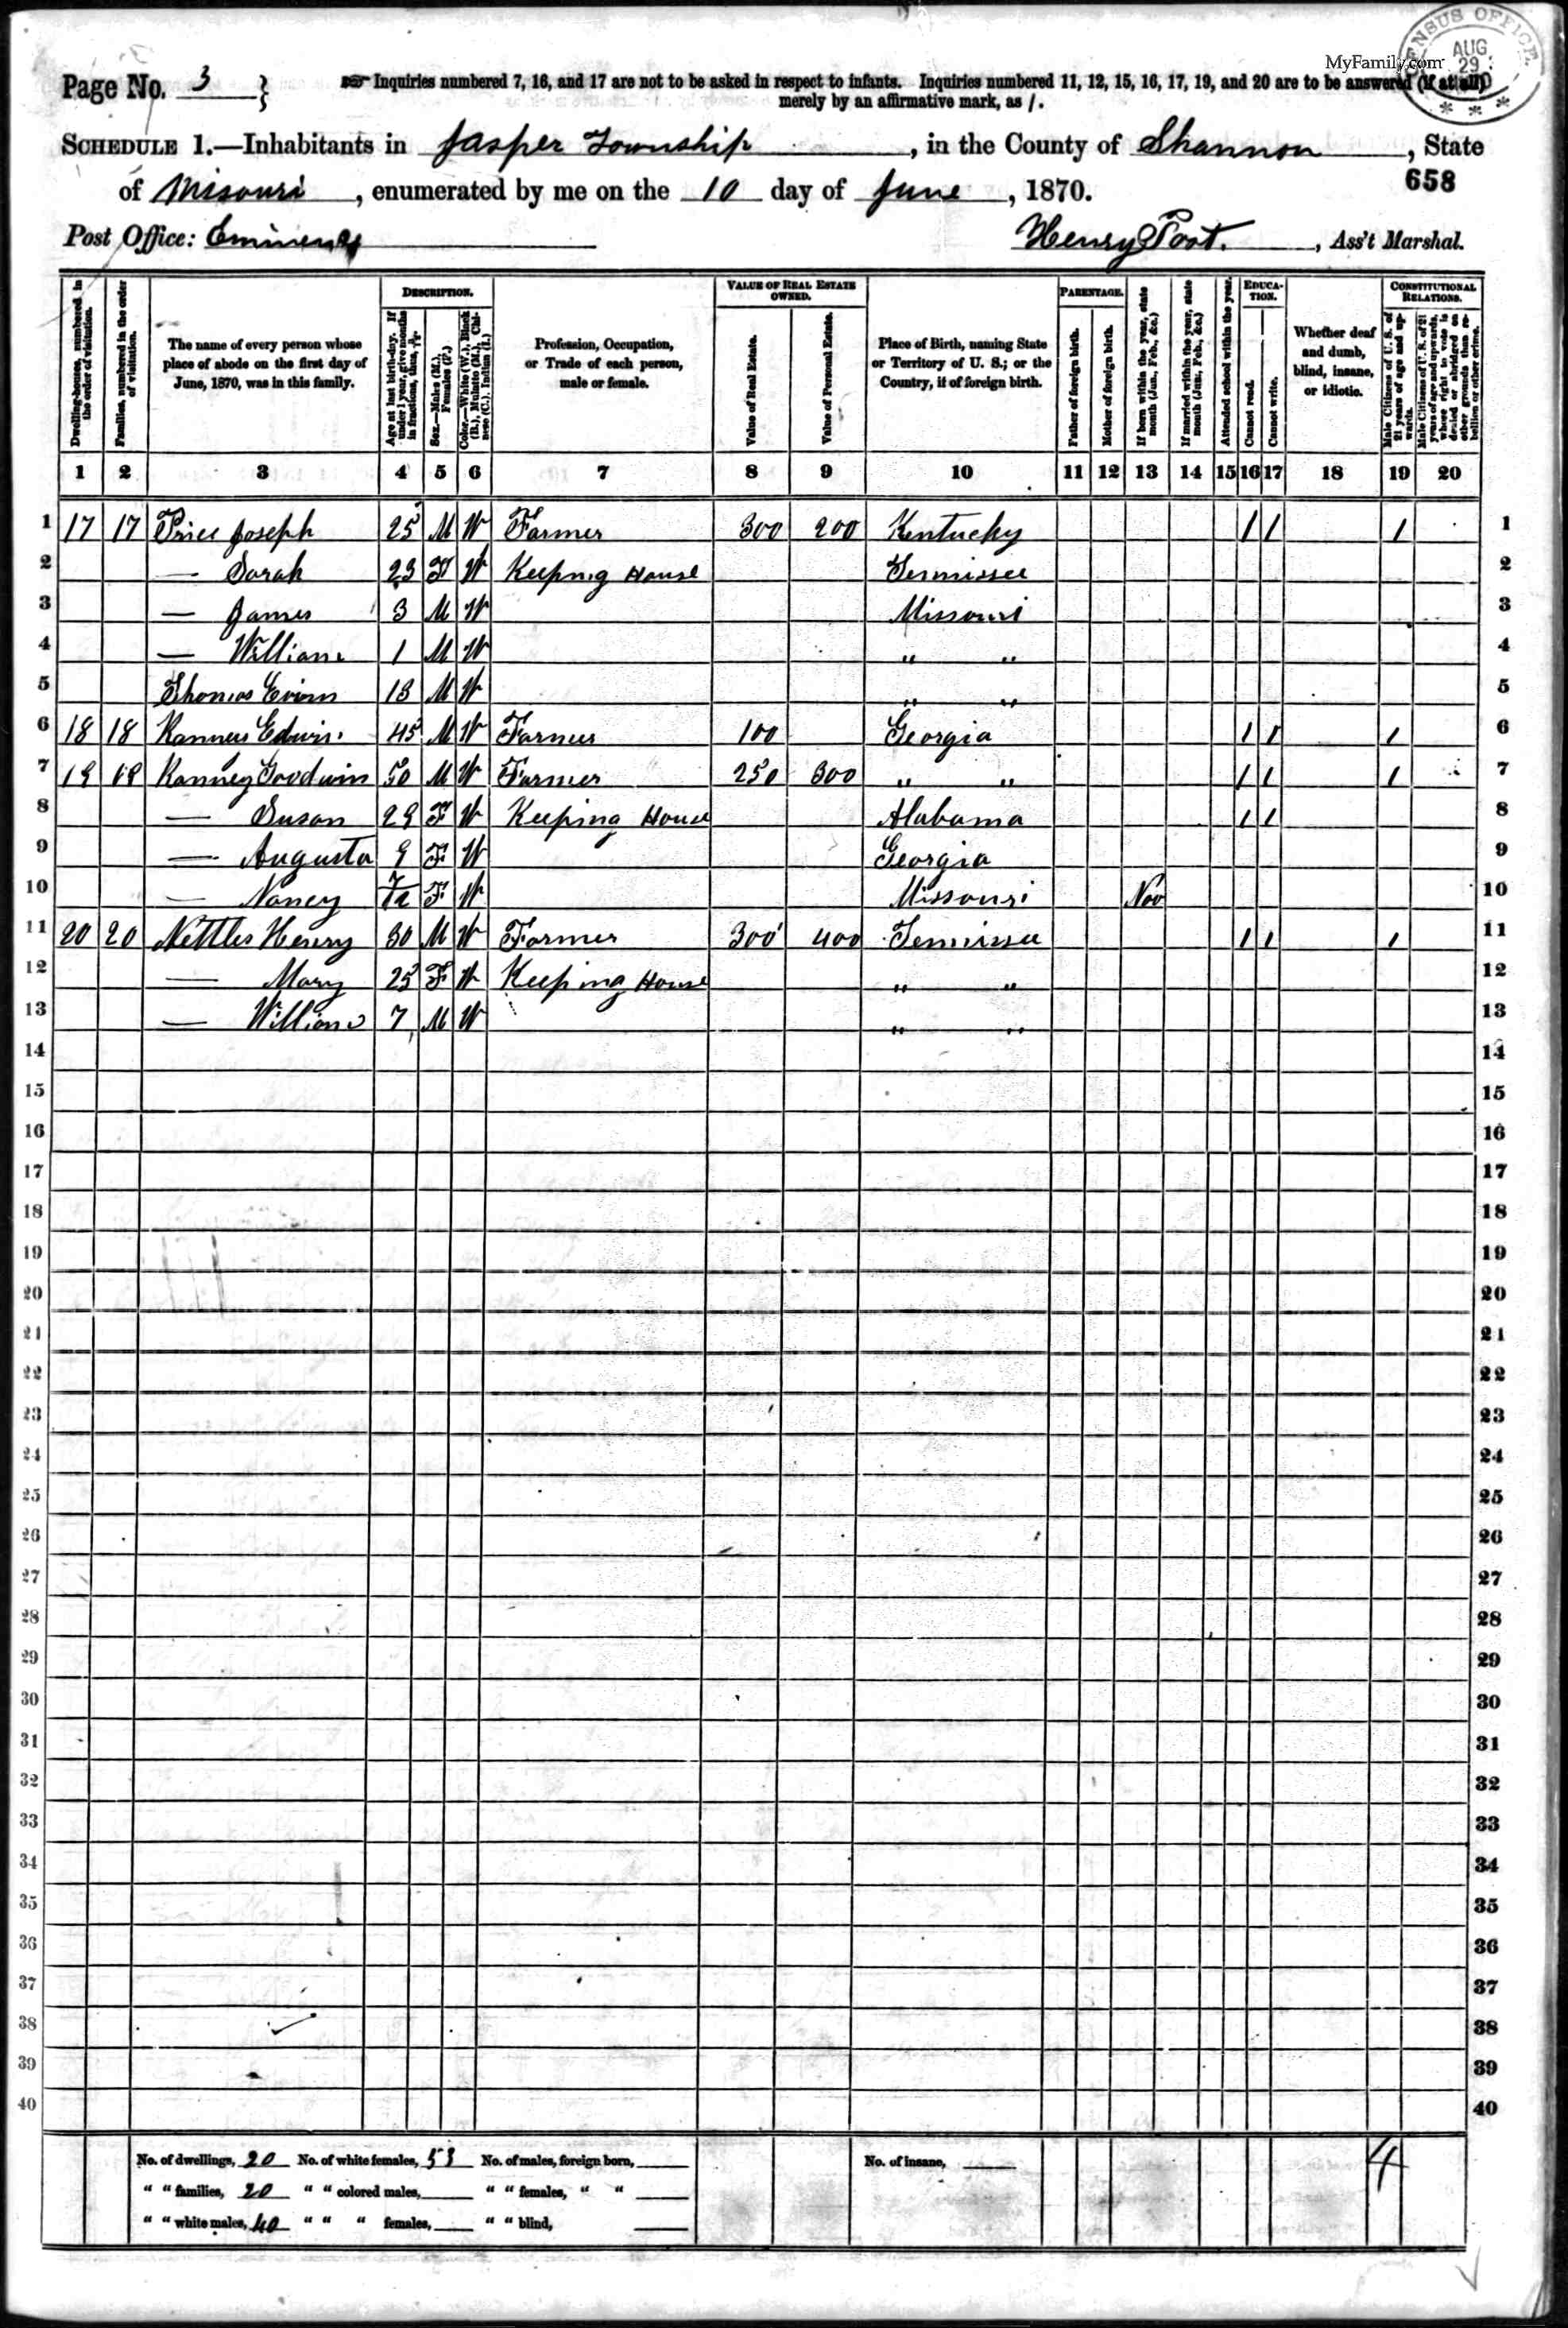 CENSUS OFFICE
AUG
29
MyFamily.com
Page No. 3
Inquiries numbered 7, 16, and 17 are not to be asked in respect to infants. Inquiries numbered 11, 12, 15, 16, 17, 19, and 20 are to be answered (if at all)
merely by an affirmative mark, as /.
SCHEDULE 1.—Inhabitants in Jasper Township, in the County of Shannon, State
of Misouri, enumerated by me on the 10 day of June, 1870.
658
Post Office: Eminence
Henry Post., Ass't Marshal.
Dwelling-houses, numbered in the order of visitation.
Families, numbered in the order of visitation.
The name of every person whose place of abode on the first day of June, 1870, was in this family.
DESCRIPTION.
Age at last birth-day. If under 1 year, give months in fractions, thus, 3/12.
Sex.—Males (M.), Females (F.)
Color.—White (W.), Black (B.), Mulatto (M.), Chinese (C.), Indian (I.)
Profession, Occupation, or Trade of each person, male or female.
VALUE OF REAL ESTATE OWNED.
Value of Real Estate.
Value of Personal Estate.
Place of Birth, naming State or Territory of U. S.; or the Country, if of foreign birth.
PARENTAGE.
Father of foreign birth.
Mother of foreign birth.
If born within the year, state month (Jan., Feb., &c.)
If married within the year, state month (Jan., Feb., &c.)
Attended school within the year.
EDUCATION.
Cannot read.
Cannot write.
Whether deaf and dumb, blind, insane, or idiotic.
CONSTITUTIONAL RELATIONS.
Male Citizens of U. S. of 21 years of age and upwards.
Male Citizens of U. S. of 21 years of age and upwards, whose right to vote is denied or abridged on other grounds than rebellion or other crime.
1 2 3 4 5 6 7 8 9 10 11 12 13 14 15 16 17 18 19 20
1 17 17 Price Joseph 25 M W Farmer 300 200 Kentucky / / / 1
2 — Sarah 23 F W Keeping House Tennissee 2
3 — James 3 M W Missouri 3
4 — William 1 M W " " 4
5 Thomas 13 M W " " 5
6 18 18 Edwin 45 M W Farmer 100 Georgia / / / 6
7 19 19 Ranney Goodwin 50 M W Farmer 250 300 " " / / / 7
8 — Susan 29 F W Keeping House Alabama / / 8
9 — Augusta 9 F W Georgia 9
10 — Nancy 7/12 F W Missouri Nov 10
11 20 20 Nettles Henry 30 M W Farmer 300 400 Tennissee / / / 11
12 — Mary 25 F W Keeping House " " 12
13 — William 7 M W " " 13
14 14
15 15
16 16
17 17
18 18
19 19
20 20
21 21
22 22
23 23
24 24
25 25
26 26
27 27
28 28
29 29
30 30
31 31
32 32
33 33
34 34
35 35
36 36
37 37
38 38
39 39
40 40
No. of dwellings, 20 No. of white females, 53 No. of males, foreign born, No. of insane, 4
" " families, 20 " " colored males, " " females, " "
" " white males, 40 " " " females, " " blind,